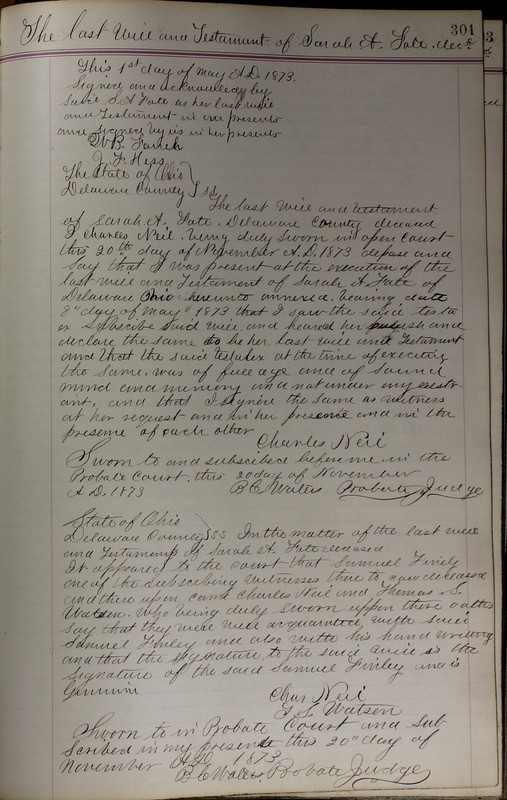 301
The last Will and Testament of Sarah A. Fate. decd
This 1st day of May A.D. 1873.
Signed and acknowledged by
Said S A Fate as her last will
and Testament in our presents
and signed by us in her presents
J. F. Hess
The State of Ohio
Delaware County } SS
The last Will and testament
of Sarah A. Fate. Delaware County deceased
I Charles Neil. being duly sworn in open Court
this 20th day of November A.D. 1873 depose and
say that I was present at the execution of the
last will and Testament of Sarah A Fate of
Delaware Ohio hereunto annexed. bearing date
day of May" 1873 that I saw the said testa
Subscibe said Will. and heared her publish and
declare the same to be her last will and Testament
and that the said testatex at the time of executing
the same. was of full age and of sound
mind and memory and not under any restr-
aint, and that I signed the same as witness
at her request and in her presence and in the
presence of each other
Charles Neil
Sworn to and subscibed before me in the
Probate Court, this 20 day of November
A.D. 1873 B C Waters Probate Judge
State of Ohio
Delaware County } SSS In the matter of the last will
and Testament of Sarah A. Fate deceased
It appeared to the court that Samuel Finley
one of the subscibing witnesses there to now deceased
and there upon came Charles Neil and Thomas S.
Watson. who being duly sworn upon there oathes
say that they were well acquainted, with said
Samuel Finley and also with his hand writing
and that the signature to the said will is the
Signature of the said Samuel Finley and is
Genuine
Chas Neil
T. S. Watson
Sworn to in Probate Court and Sub
scribed in my presents this 20" day of
November A.D. 1873
B C Waters Probate Judge